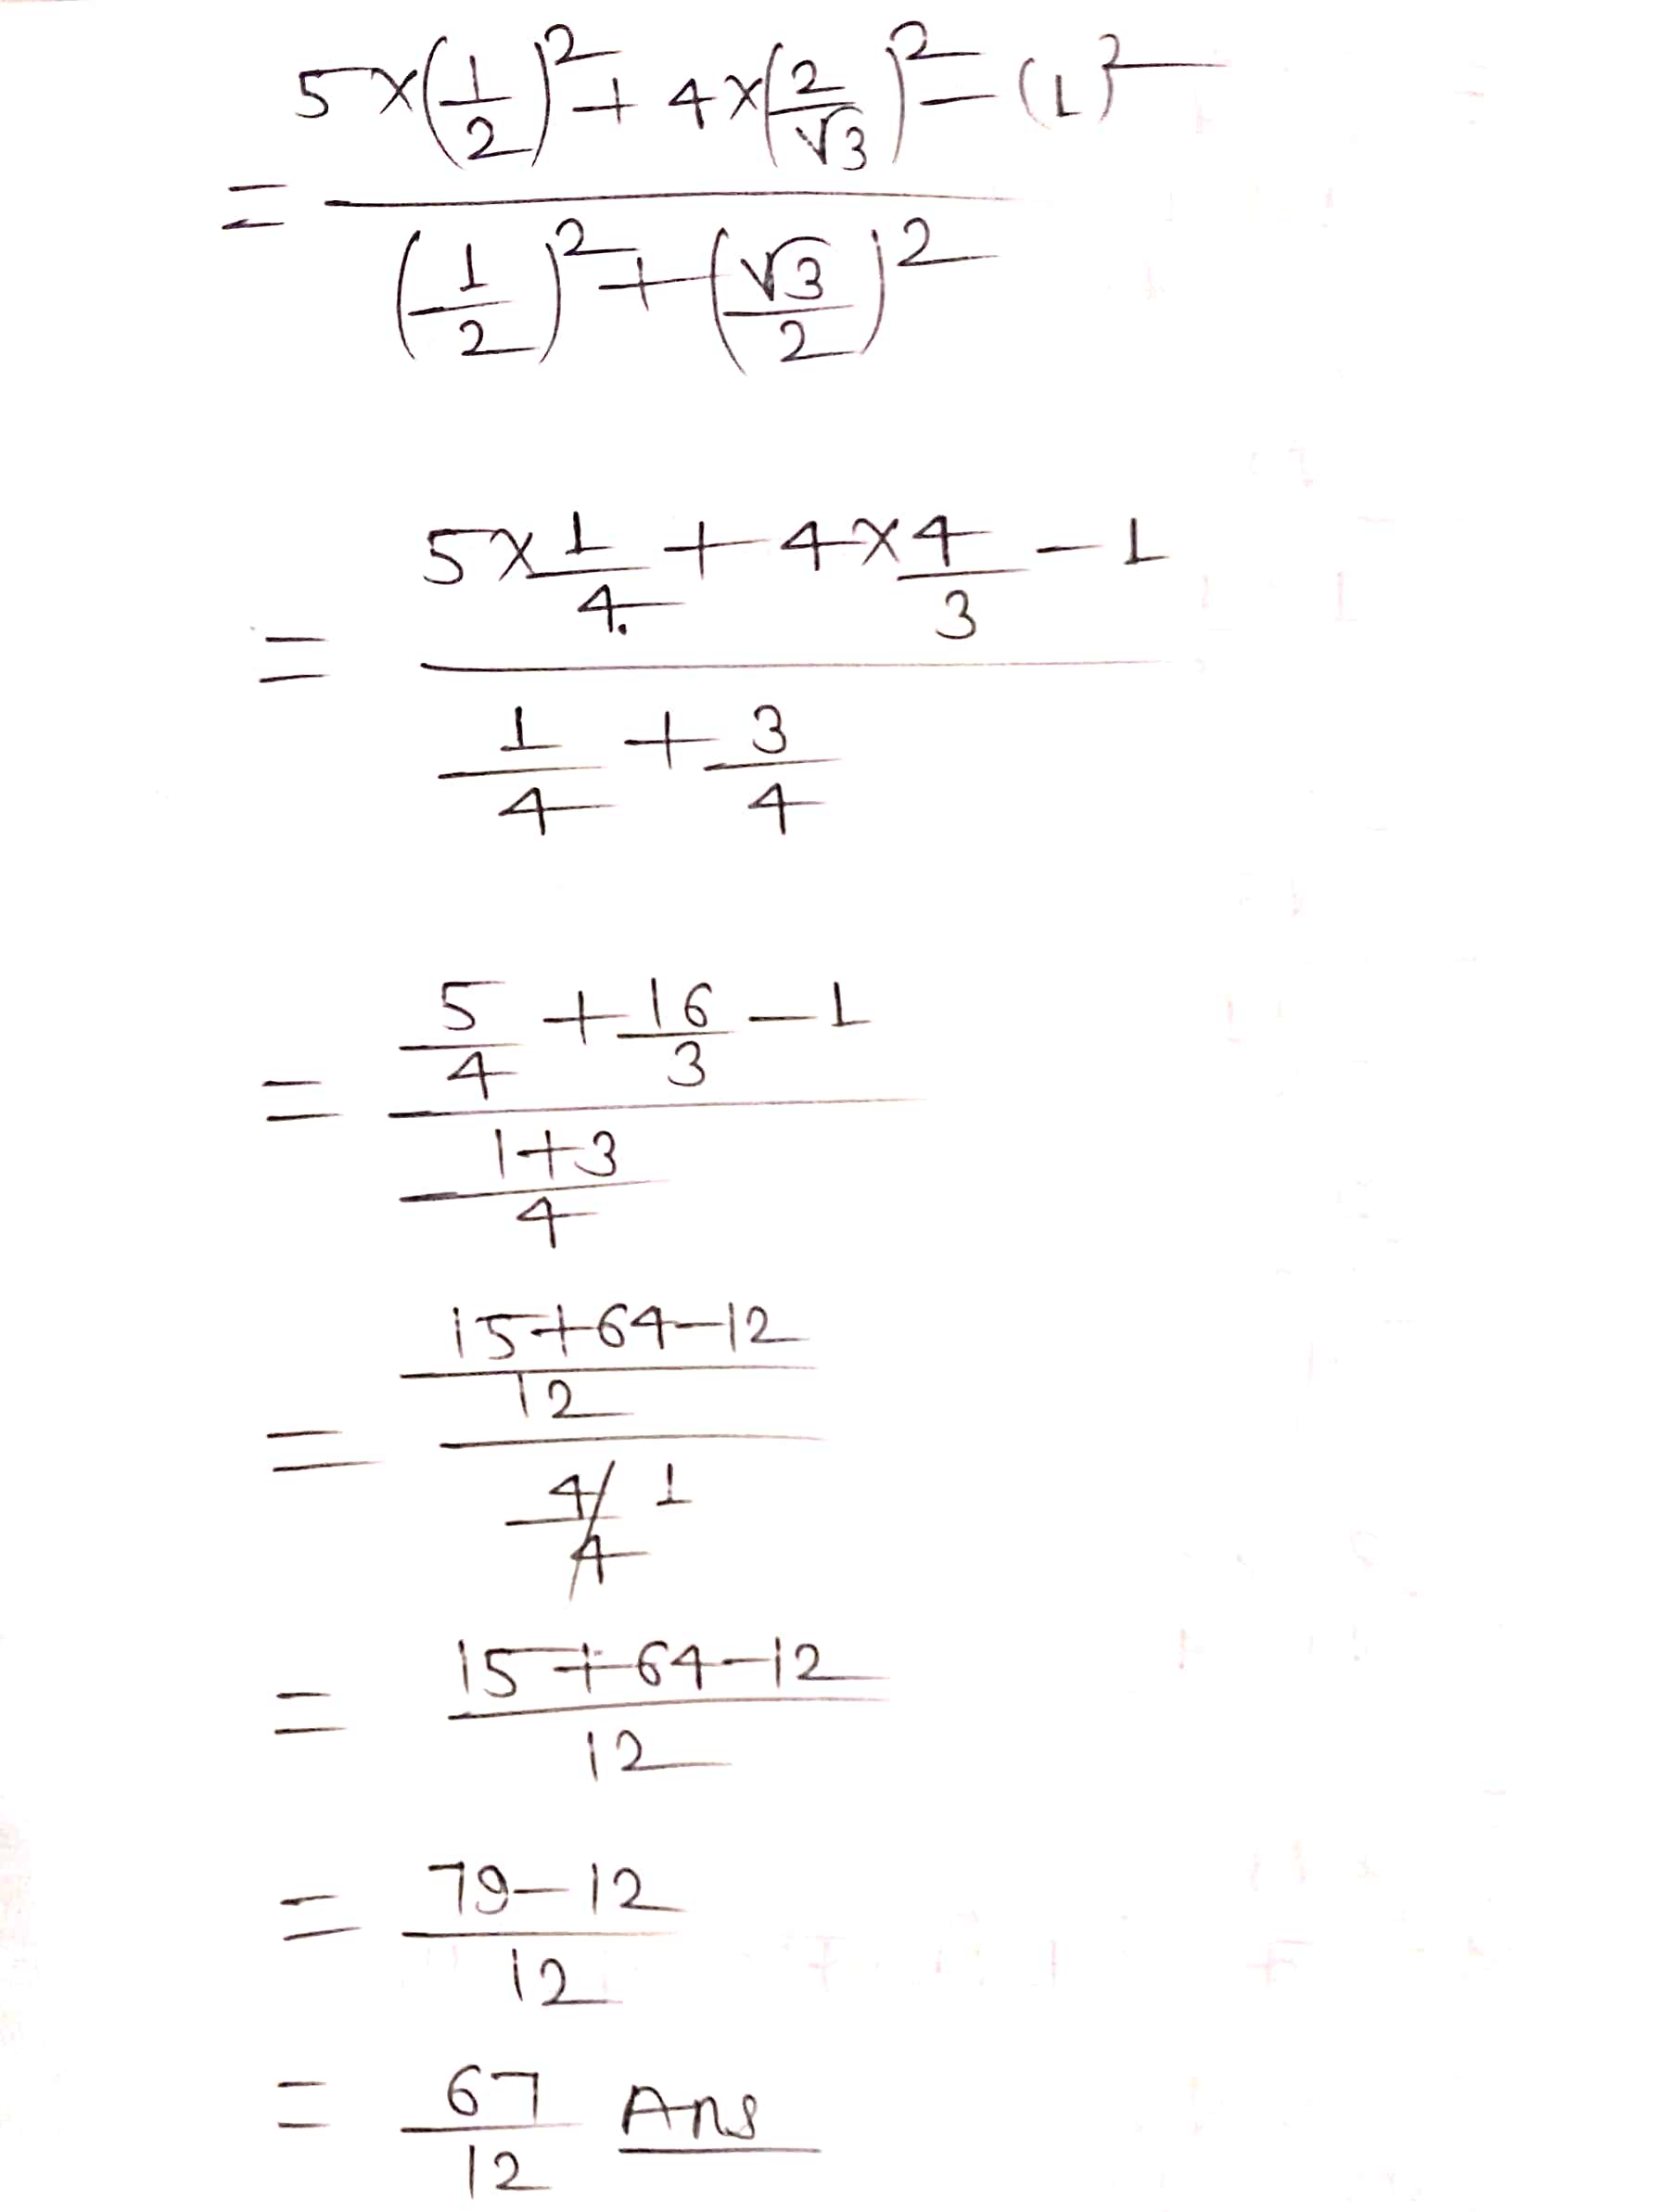 = (5×(1/2)²+4×(2/√3)²-(1)²)/((1/2)²+(√3/2)²)
= (5×1/4+4×4/3-1)/(1/4+3/4)
= (5/4+16/3-1)/((1+3)/4)
= ((15+64-12)/12)/(4/4) 1
= (15+64-12)/12
= (79-12)/12
= 67/12 Ans